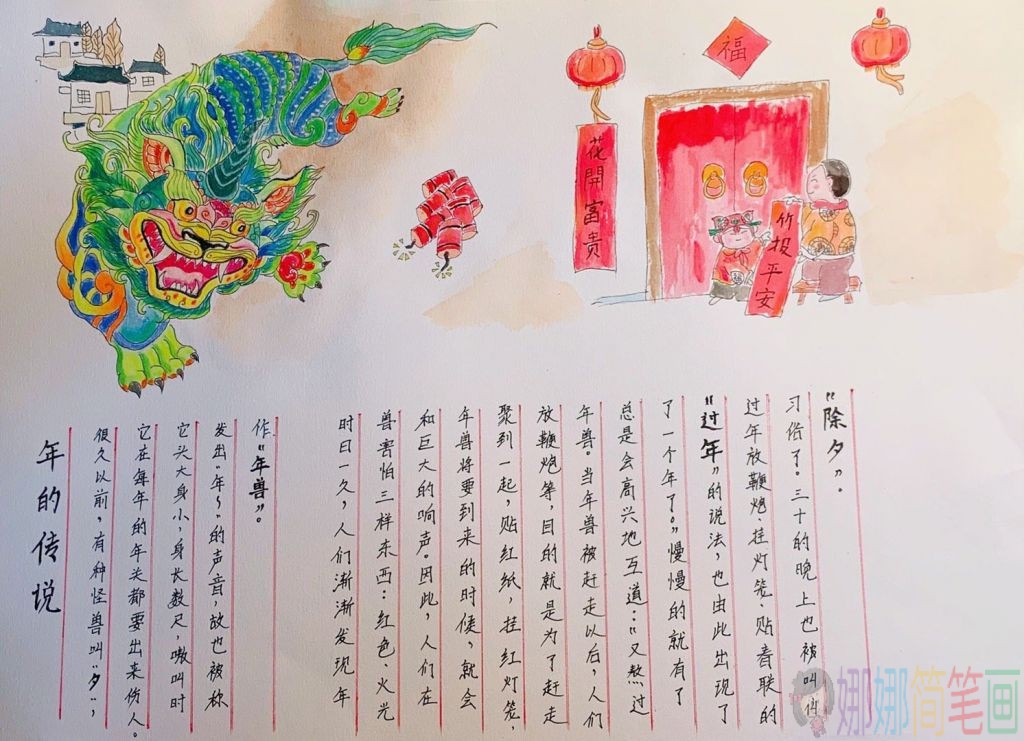 福
花開富贵
竹报平安
年的传说
很久以前，有种怪兽叫“夕”，
它在每年的年关都要出来伤人。
它头大身小，身长数尺，嗷叫时
发出“年~”的声音，故也被称
作“年兽”。
时日一久，人们渐渐发现年
兽害怕三样东西：红色、火光
和巨大的响声。因此，人们在
年兽将要到来的时候，就会
聚到一起，贴红纸，挂红灯笼，
放鞭炮等，目的就是为了赶走
年兽。当年兽被赶走以后，人们
总是会高兴地互道：“又熬过
了一个年了。”慢慢的就有了
“过年”的说法，也由此出现了
过年放鞭炮、挂灯笼、贴春联的
习俗了。三十的晚上也被叫作
“除夕”。
娜娜简笔画